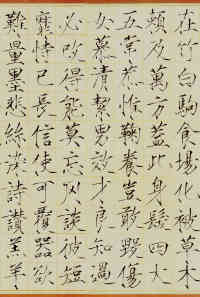 在竹白駒食場化被草木
賴及萬方蓋此身髮四大
五常恭惟鞠養豈敢毀傷
女慕清絜男效才良知過
必改得能莫忘罔談彼短
靡恃己長信使可覆器欲
難量墨悲絲染詩讚羔羊